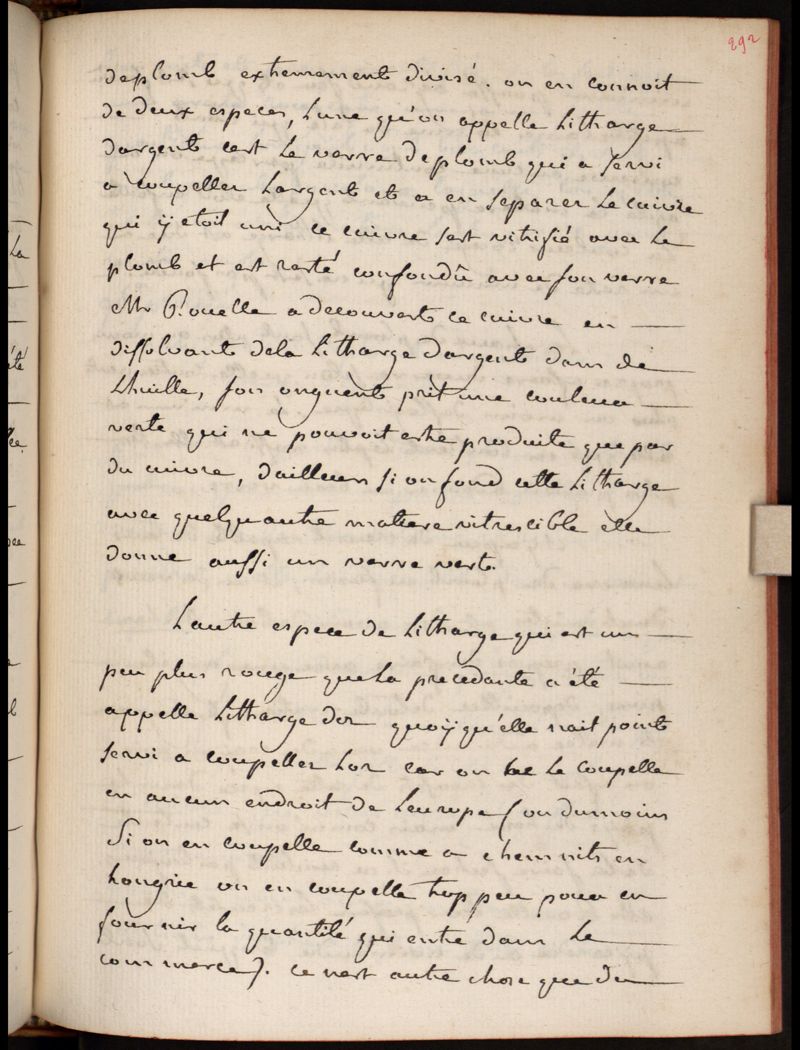 292
deplomb extremement divisé. on en connoit
de deux especes, Lune qu'on appelle Litharge
dargent cest Le verre deplomb qui a servi
a coupeller Largent et a en separer Le cuivre
qui ÿ etoit uni ce cuivre sest vitrifié avec Le
plomb et est resté confondû avec son verre
Mr Rouelle a decouvert ce cuivre en
dissolvant dela Litharge dargent dans de
Lhuille, son onguent prit une couleur
verte qui ne pouvoit estre produite que par
du cuivre, dailleurs si on fond cette Litharge
avec quelqu autre matiere vitrescible elle
donne aussi un verre vert.
Lautre espece de Litharge qui est un
peu plus rouge que La precedante a été
appelle Litharge dor quoÿ qu'elle nait point
servi a coupeller Lor car on ne Le coupelle
en aucun endroit de Leurope (ou dumoins
Si on en coupelle comme a chemnits en
hongrie on en coupelle trop peu pour en
fournir la quantité qui entre dans Le
commerce). ce nest autre chose que du
La
été